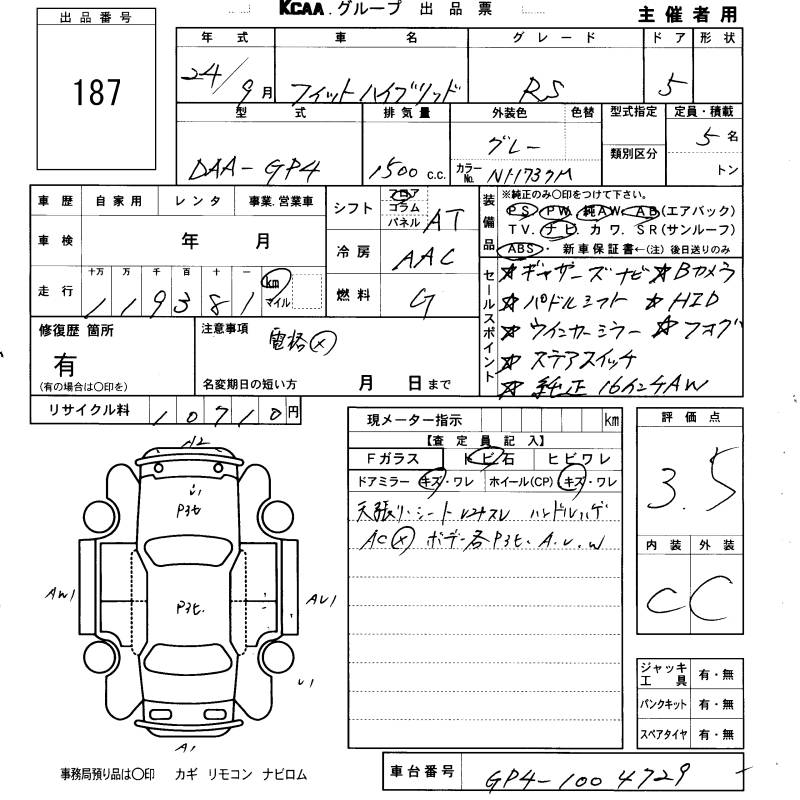 KCAA.グループ 出品票
主催者用
出品番号
187
年式 車名 グレード ドア 形状
24/9月 フィットハイブリッド RS 5
型式 排気量 外装色 色替 型式指定 定員・積載
類別区分
DAA-GP4 1500 c.c. グレー カラーNo. NH737M 5名
トン
車歴 自家用 レンタ 事業.営業車
車検 年 月
走行 十万 万 千 百 十 一
119381 km マイル
シフト フロア コラム パネル AT
冷房 AAC
燃料 G
装備品 ※純正のみ〇印をつけて下さい。
PS・PW・純AW・AB(エアバック)
TV. ナビ. カワ. SR(サンルーフ)
ABS・ 新車保証書←(注) 後日送りのみ
セールスポイント
★ギャザーズナビ ★Bカメラ
★パドルシフト ★HID
★ウインカーミラー ★フォグ
★ステアスイッチ
★純正16インチAW
修復歴 箇所
有
(有の場合は〇印を)
注意事項 電格×
名変期日の短い方 月 日まで
リサイクル料 10710円
現メーター指示 km
【査定員記入】
Fガラス トビ石 ヒビワレ
ドアミラー キズ・ワレ ホイール(CP) キズ・ワレ
天張り・シート ハンドルハゲ
AC× ボデー各P3セ. A.U.W
評価点
3.5
内装 外装
C C
A2
U1
P3セ
P3セ.
AW1
AU1
U1
A1
ジャッキ工具 有・無
パンクキット 有・無
スペアタイヤ 有・無
事務局預り品は〇印 カギ リモコン ナビロム
車台番号 GP4-1004729